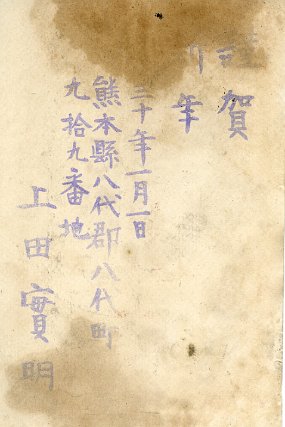 謹賀
新年
三十年一月一日
熊本縣八代郡八代町
九拾九番地
上田實明